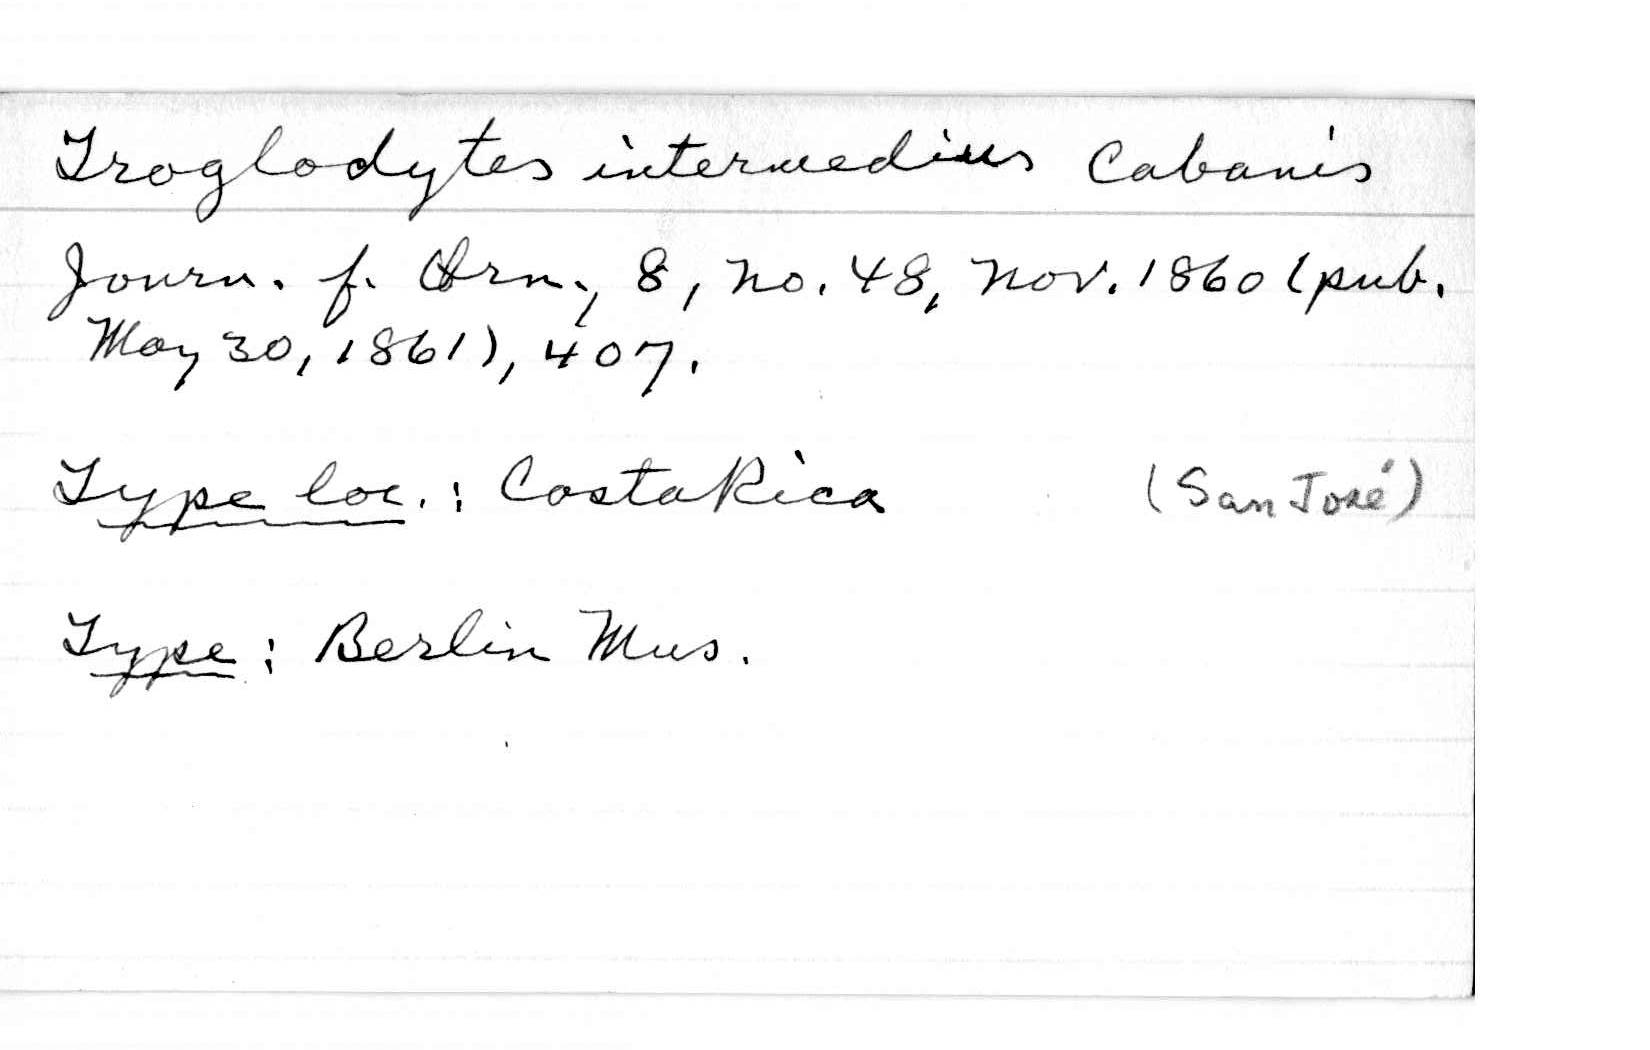 Troglodytes intermedius Cabanis
Journ. f. Orn., 8, no. 48, Nov. 1860 (pub.
May 30, 1861), 407.
Type loc.: Costa Rica (San José)
Type: Berlin Mus.